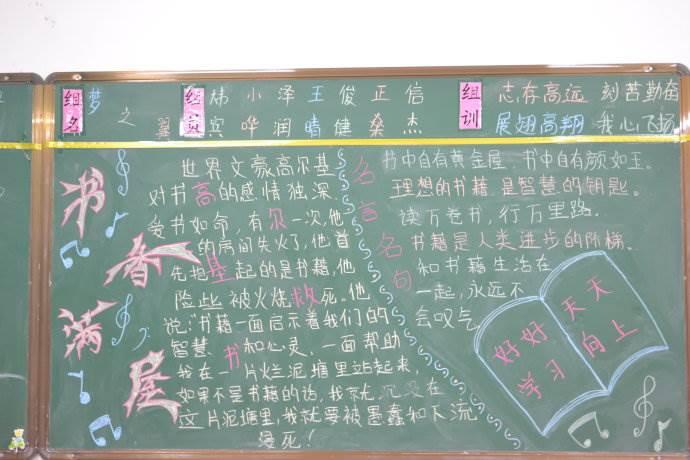 组名
梦之翼
组员
炜 小 泽 王 俊 正 信
宾 哗 润 晴 健 桑 杰
组训
志存高远 刻苦勤奋
展翅高翔 我心飞扬
书香满屋
世界文豪高尔基
对书高的感情独深,
爱书如命,有尔一次,他
的房间失火了,他首
先抱基起的是书籍,他
险些被火烧救死。他
说:“书籍一面启示着我们的
智慧书和心灵,一面帮助
我在一片烂泥塘里站起来,
如果不是书籍的话,我就沉没在
这片泥塘里,我就要被愚蠢和下流
浸死!
名言名句
书中自有黄金屋、书中自有颜如玉。
理想的书籍,是智慧的钥匙。
读万卷书,行万里路.
书籍是人类进步的阶梯.
和书籍生活在
一起,永远不
会叹气
好好学习
天天向上